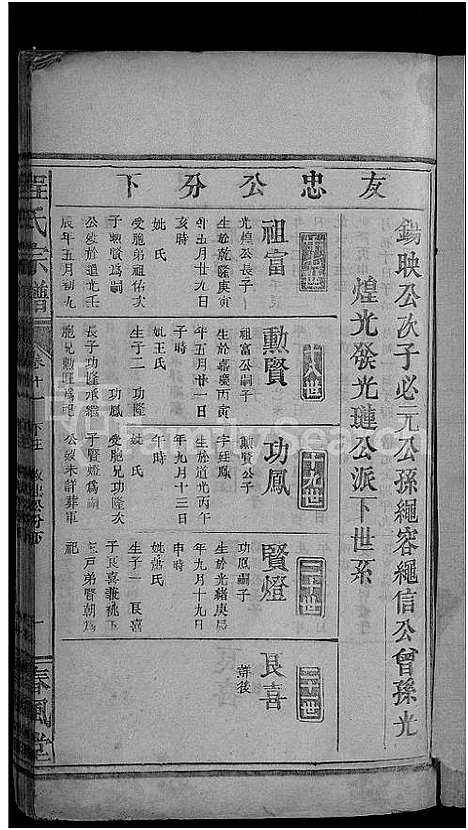 錫映公次子必元公孫繩容繩信公曾孫光
煌光發光璉公派下世系
友忠公分下
十七世
祖富
光煌公長子
生於乾隆庚寅
年五月廿九日
亥時
妣 氏
受胞弟祖佑次
子勲賢為嗣
公歿於道光壬
辰年五月初九
十八世
勲賢
祖富公嗣子
生於嘉慶丙寅
年五月廿一日
妣王氏
生子二 功隆
功鳳
長子功隆承繼
胞兄勲旺為祀
十九世
功鳳
勲賢公子
字廷鳳
生於道光丙午
年九月十三日
午時
妣 氏
受胞兄功隆次
子賢燈為嗣
公歿未詳葬軍
二十世
賢燈
功鳳嗣子
生於光緒庚辰
年九月十九日
申時
妣蕭氏
生子一 艮喜
子艮喜兼祧五
戶弟賢朝為
祀
二十一世
艮喜
詳後
程氏宗譜
卷十一
春風堂
FamilySearch